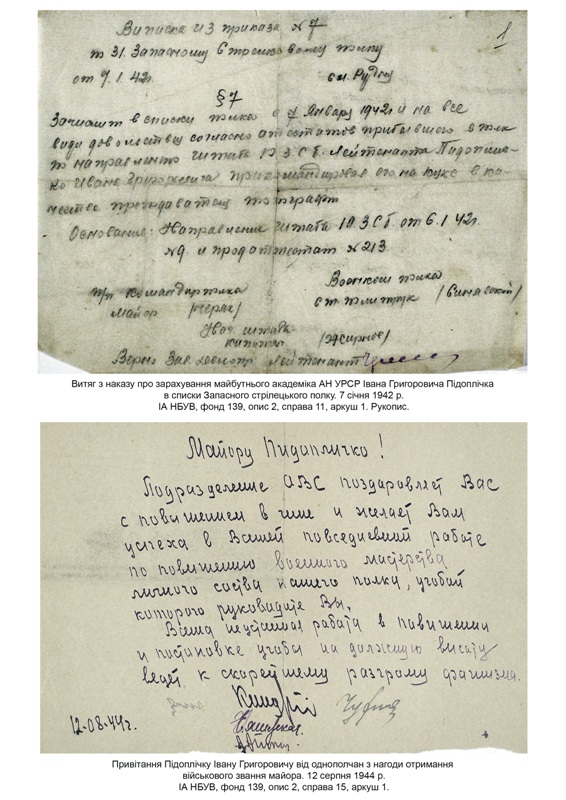 1
Выписка из приказа № 7
31. Запасному Стрелковому полку
от 7.1.42г. ст. Рудня
§ 7
Зачислить в списки полка с 7 Января 1942г и на все
виды довольствия согласно аттестатов прибывшего в полк
направлению штаба 10 З.С.б. Лейтенанта Пидоплич-
ко Ивана Григорьевича прикомандировав его на
честве преподавателя топографии
Основание: Направление штаба 10 З.С.б. от 6.1.42г.
№9. и продаттестат № 213.
Военком полка
п/п Командир полка
майор ст. политрук
Нач. штаба
капитан
Верно: Зав. Лейтенант
Витяг з наказу про зарахування майбутнього академіка АН УРСР Івана Григоровича Підоплічка
в списки Запасного стрілецького полку. 7 січня 1942 р.
ІА НБУВ, фонд 139, опис 2, справа 11, аркуш 1. Рукопис.
Майору Пидопличко!
Подразделение ОВС поздравляет Вас
с повышением в чине и желает Вам
успеха в Вашей повседневной работе
по повышению военного мастерства
личного состава нашего полка, учебой
которого руководите Вы.
Ваша неустанная работа в повышении
и постановке учебы на должную высоту
ведет к скорейшему разгрому фашизма.
12-08-44г.
Привітання Підоплічку Івану Григоровичу від однополчан з нагоди отримання
військового звання майора. 12 серпня 1944 р.
ІА НБУВ, фонд 139, опис 2, справа 15, аркуш 1.